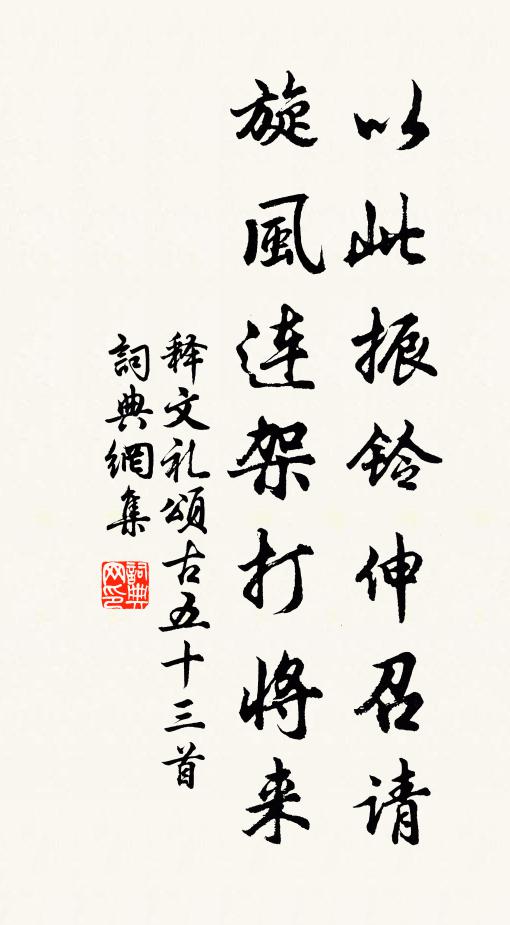 以此振鈴伸召请
旋風连架打將来
释文礼頌古五十三首
詞典網集
詞典网印